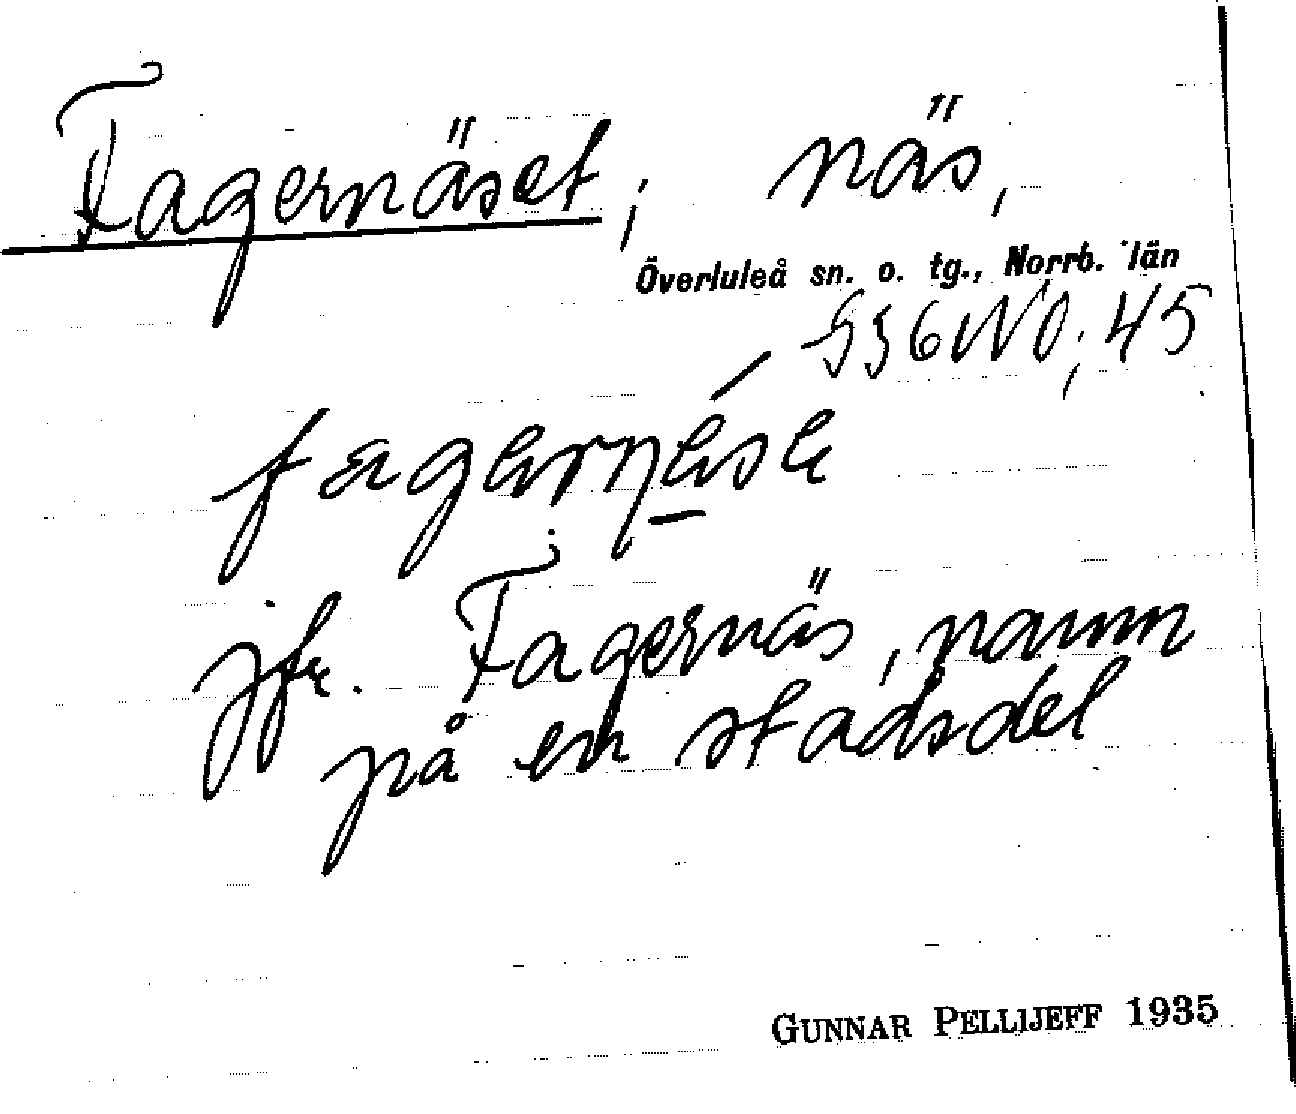 Fagernäset, näs,
Överluleå sn. o. tg., Norrb. län
S36NO; 45
jfr. Fagernäs, namn
på en stadsdel
GUNNAR PELLIJEFF 1935